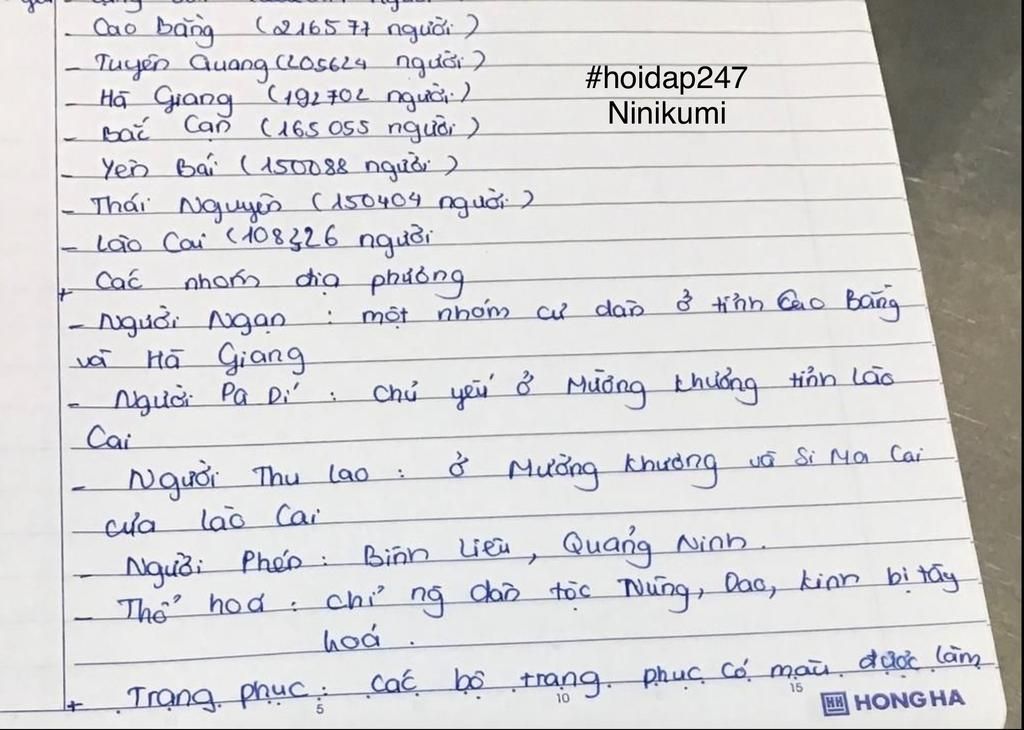 - Cao Bằng (216577 người)
- Tuyên Quang (205624 người)
- Hà Giang (192702 người)
- Bắc Cạn (165055 người)
- Yên Bái (150088 người)
- Thái Nguyên (150404 người)
- Lào Cai (108326 người
+ Các nhóm địa phương
- Người Ngạn : một nhóm cư dân ở tỉnh Cao Bằng
và Hà Giang
- Người Pa Dí : chủ yếu ở Mường Khương tỉnh Lào
Cai
- Người Thu Lao : ở Mường Khương và Si Ma Cai
của Lào Cai
- Người Phén : Bình Liêu, Quảng Ninh.
- Thổ hoá : chỉ ng dân tộc Nùng, Dao, Kinh bị tày
hoá.
+ Trang phục : các bộ trang phục có màu được làm
5 10 15
HH HONG HA
#hoidap247
Ninikumi